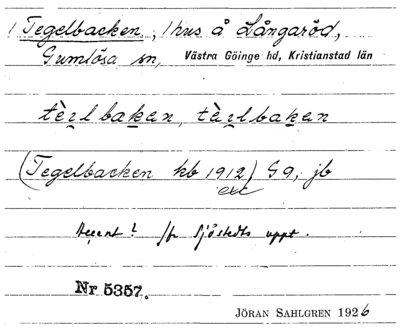 1 Tegelbacken, 1 hus å Långaröd,
Gumlösa sn, Västra Göinge hd, Kristianstad län
tèɪ̯lbaḵan, tàɪ̯lbaḵan
(Tegelbacken kb 1912) G9, jb
Accent? /fr Sjöstedts uppt.
Nr 5357.
JÖRAN SAHLGREN 1926